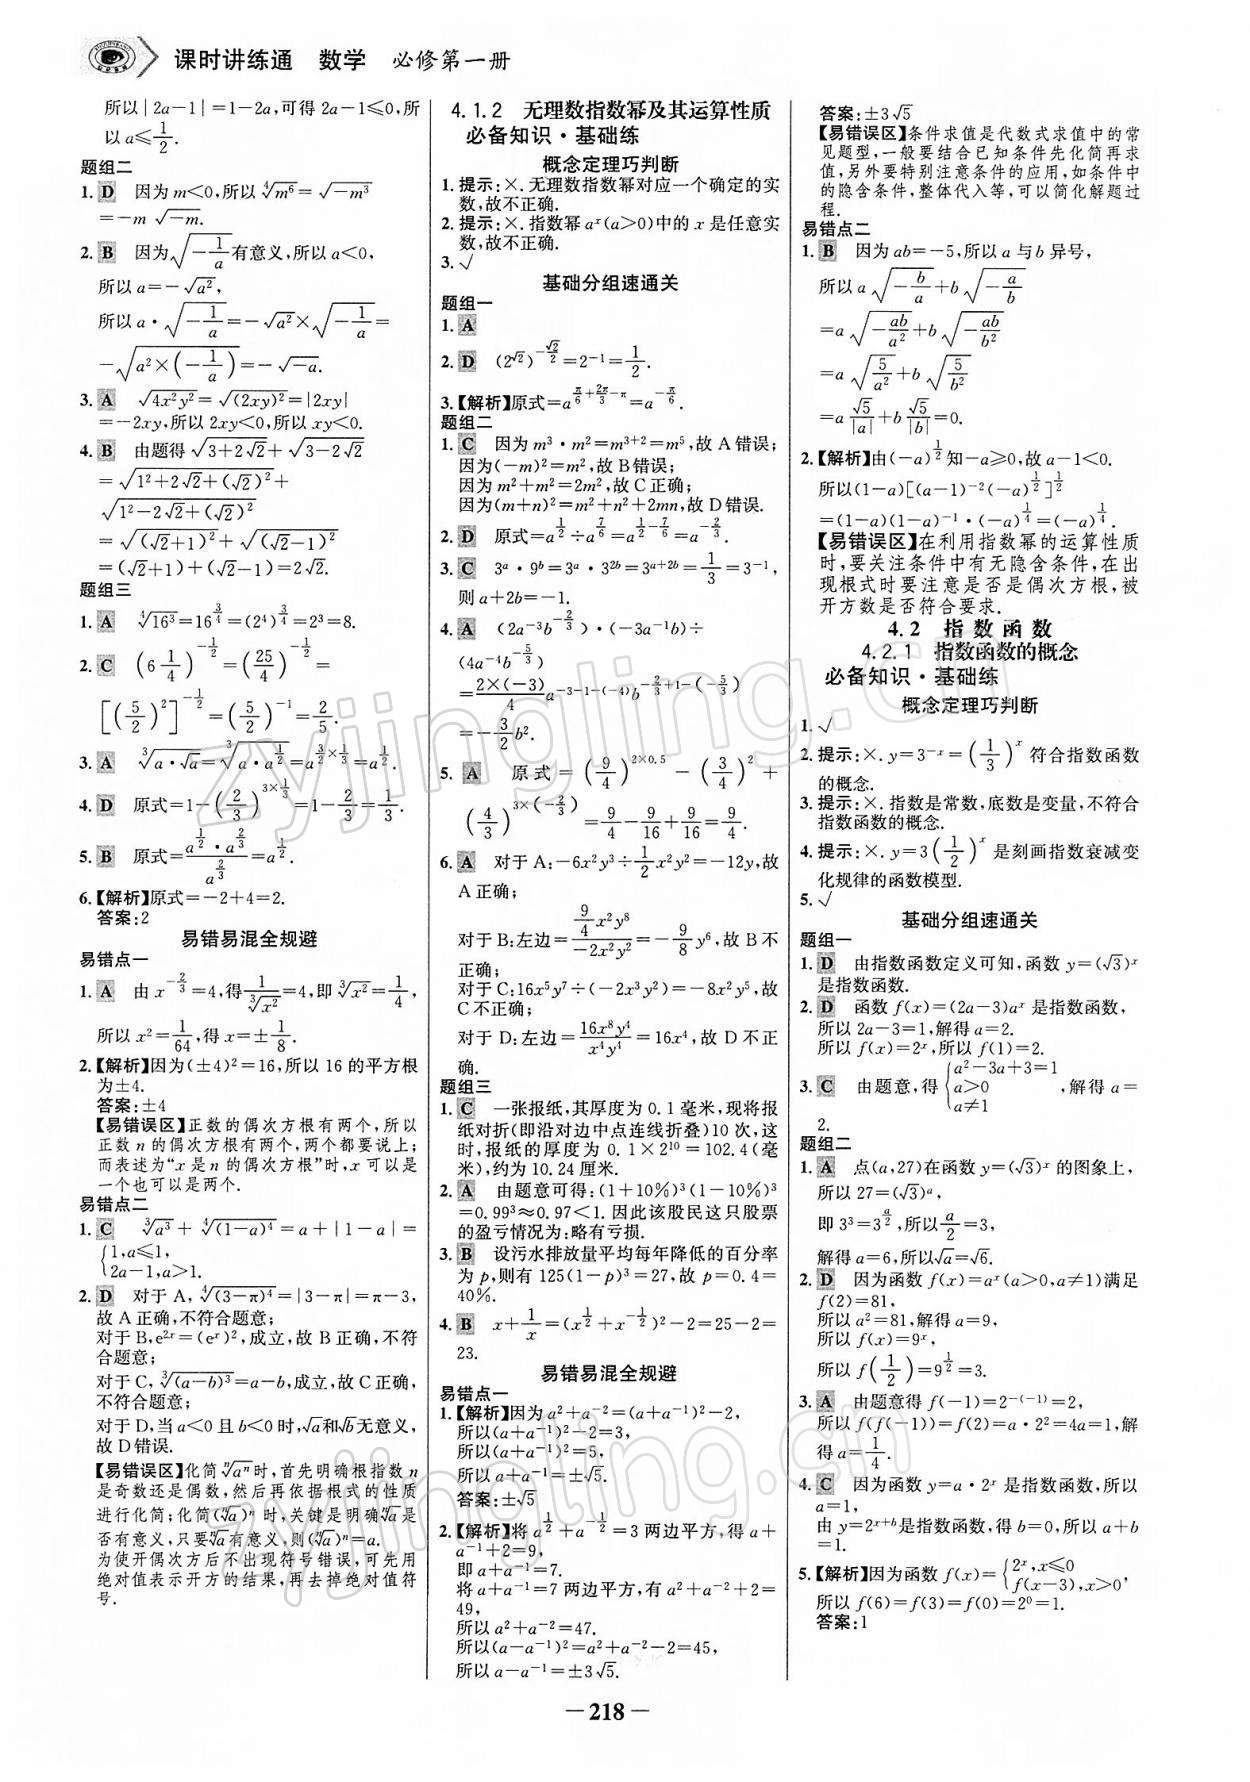 课时讲练通 数学 必修第一册
所以|2a－1|＝1－2a,可得 2a－1≤0,所
以 a≤1/2.
题组二
1. D 因为 m＜0,所以 ⁴√(m⁶)＝√(－m³)
＝－m √(－m).
2. B 因为√(－1/a)有意义,所以 a＜0,
所以 a＝－√(a²),
所以 a·√(－1/a)＝－√(a²)×√(－1/a)＝
－√(a²×(－1/a))＝－√(－a).
3. A √(4x²y²)＝√((2xy)²)＝|2xy|
＝－2xy,所以 2xy＜0,所以 xy＜0.
4. B 由题得√(3＋2√2)＋√(3－2√2)
＝√(1²＋2√2＋(√2)²)＋
√(1²－2√2＋(√2)²)
＝√((√2＋1)²)＋√((√2－1)²)
＝(√2＋1)＋(√2－1)＝2√2.
题组三
1. A ⁴√(16³)＝16^(3/4)＝(2⁴)^(3/4)＝2³＝8.
2. C (6 1/4)^(－1/2)＝(25/4)^(－1/2)＝
[(5/2)²]^(－1/2)＝(5/2)^(－1)＝2/5.
3. A ³√(a·√a)＝³√(a·a^(1/2))＝a^(3/2×1/3)＝a^(1/2).
4. D 原式＝1－(2/3)^(3×1/3)＝1－2/3＝1/3.
5. B 原式＝(a^(1/2)·a^(2/3))/a^(2/3)＝a^(1/2).
6.【解析】原式＝－2＋4＝2.
答案:2
易错易混全规避
易错点一
1. A 由 x^(－2/3)＝4,得1/³√(x²)＝4,即³√(x²)＝1/4,
所以 x²＝1/64,得 x＝±1/8.
2.【解析】因为(±4)²＝16,所以 16 的平方根
为±4.
答案:±4
【易错误区】正数的偶次方根有两个,所以
正数 n 的偶次方根有两个,两个都要说上;
而表述为“x 是 n 的偶次方根”时,x 可以是
一个也可以是两个.
易错点二
1. C ³√(a³)＋⁴√((1－a)⁴)＝a＋|1－a|＝
{1,a≤1,
2a－1,a＞1.
2. D 对于 A,⁴√((3－π)⁴)＝|3－π|＝π－3,
故 A 正确,不符合题意;
对于 B,e²ˣ＝(eˣ)²,成立,故 B 正确,不符
合题意;
对于 C,³√((a－b)³)＝a－b,成立,故 C 正确,
不符合题意;
对于 D,当 a＜0 且 b＜0 时,√a和√b无意义,
故 D 错误.
【易错误区】化简ⁿ√(aⁿ)时,首先明确根指数 n
是奇数还是偶数,然后再依据根式的性质
进行化简;化简(ⁿ√a)ⁿ时,关键是明确ⁿ√a是
否有意义,只要ⁿ√a有意义,则(ⁿ√a)ⁿ＝a.
为使开偶次方后不出现符号错误,可先用
绝对值表示开方的结果,再去掉绝对值符
号.
4.1.2 无理数指数幂及其运算性质
必备知识·基础练
概念定理巧判断
1. 提示:×.无理数指数幂对应一个确定的实
数,故不正确.
2. 提示:×.指数幂 aˣ(a＞0)中的 x 是任意实
数,故不正确.
3. √
基础分组速通关
题组一
1. A
2. D (2^(√2))^(－√2/2)＝2⁻¹＝1/2.
3.【解析】原式＝a^(π/6＋2π/3－π)＝a^(－π/6).
题组二
1. C 因为 m³·m²＝m³⁺²＝m⁵,故 A 错误;
因为(－m)²＝m²,故 B 错误;
因为 m²＋m²＝2m²,故 C 正确;
因为(m＋n)²＝m²＋n²＋2mn,故 D 错误.
2. D 原式＝a^(1/2)÷a^(7/6)＝a^(1/2－7/6)＝a^(－2/3).
3. C 3ᵃ·9ᵇ＝3ᵃ·3²ᵇ＝3ᵃ⁺²ᵇ＝1/3＝3⁻¹,
则 a＋2b＝－1.
4. A (2a⁻³b^(－2/3))·(－3a⁻¹b)÷
(4a⁻⁴b^(－5/3))
＝(2×(－3))/4 a^(－3－1－(－4))b^(－2/3＋1－(－5/3))
＝－3/2 b².
5. A 原式＝(9/4)^(2×0.5)－(3/4)²＋
(4/3)^(3×(－2/3))＝9/4－9/16＋9/16＝9/4.
6. A 对于 A:－6x²y³÷1/2 x²y²＝－12y,故
A 正确;
对于 B:左边＝(9/4 x²y⁸)/(－2x²y²)＝－9/8 y⁶,故 B 不
正确;
对于 C:16x⁵y⁷÷(－2x³y²)＝－8x²y⁵,故
C 不正确;
对于 D:左边＝16x⁸y⁴/x⁴y⁴＝16x⁴,故 D 不正
确.
题组三
1. C 一张报纸,其厚度为 0.1 毫米,现将报
纸对折(即沿对边中点连线折叠)10 次,这
时,报纸的厚度为 0.1×2¹⁰＝102.4(毫
米),约为 10.24 厘米.
2. A 由题意可得:(1＋10%)³(1－10%)³
＝0.99³≈0.97＜1.因此该股民这只股票
的盈亏情况为:略有亏损.
3. B 设污水排放量平均每年降低的百分率
为 p,则有 125(1－p)³＝27,故 p＝0.4＝
40%.
4. B x＋1/x＝(x^(1/2)＋x^(－1/2))²－2＝25－2＝
23.
易错易混全规避
易错点一
1.【解析】因为 a²＋a⁻²＝(a＋a⁻¹)²－2,
所以(a＋a⁻¹)²－2＝3,
所以(a＋a⁻¹)²＝5,
所以 a＋a⁻¹＝±√5.
答案:±√5
2.【解析】将 a^(1/2)＋a^(－1/2)＝3 两边平方,得 a＋
a⁻¹＋2＝9,
即 a＋a⁻¹＝7.
将 a＋a⁻¹＝7 两边平方,有 a²＋a⁻²＋2＝
49,
所以 a²＋a⁻²＝47.
所以(a－a⁻¹)²＝a²＋a⁻²－2＝45,
所以 a－a⁻¹＝±3√5.
答案:±3√5
【易错误区】条件求值是代数式求值中的常
见题型,一般要结合已知条件先化简再求
值,另外要特别注意条件的应用,如条件中
的隐含条件,整体代入等,可以简化解题过
程.
易错点二
1. B 因为 ab＝－5,所以 a 与 b 异号,
所以 a√(－b/a)＋b√(－a/b)
＝a√(－ab/a²)＋b√(－ab/b²)
＝a√(5/a²)＋b√(5/b²)
＝a √5/|a|＋b √5/|b|＝0.
2.【解析】由(－a)^(1/2)知－a≥0,故 a－1＜0.
所以(1－a)[(a－1)⁻²(－a)^(1/2)]^(1/2)
＝(1－a)(1－a)⁻¹·(－a)^(1/4)＝(－a)^(1/4).
【易错误区】在利用指数幂的运算性质
时,要关注条件中有无隐含条件,在出
现根式时要注意是否是偶次方根,被
开方数是否符合要求.
4.2 指数函数
4.2.1 指数函数的概念
必备知识·基础练
概念定理巧判断
1. √
2. 提示:×. y＝3⁻ˣ＝(1/3)ˣ 符合指数函数
的概念.
3. 提示:×.指数是常数,底数是变量,不符合
指数函数的概念.
4. 提示:×. y＝3(1/2)ˣ 是刻画指数衰减变
化规律的函数模型.
5. √
基础分组速通关
题组一
1. D 由指数函数定义可知,函数 y＝(√3)ˣ
是指数函数.
2. D 函数 f(x)＝(2a－3)aˣ 是指数函数,
所以 2a－3＝1,解得 a＝2.
所以 f(x)＝2ˣ,所以 f(1)＝2.
3. C 由题意,得{a²－3a＋3＝1
a＞0
a≠1 ,解得 a＝
2.
题组二
1. A 点(a,27)在函数 y＝(√3)ˣ 的图象上,
所以 27＝(√3)ᵃ,
即 3³＝3^(a/2),所以a/2＝3,
解得 a＝6,所以√a＝√6.
2. D 因为函数 f(x)＝aˣ(a＞0,a≠1)满足
f(2)＝81,
所以 a²＝81,解得 a＝9,
所以 f(x)＝9ˣ,
所以 f(1/2)＝9^(1/2)＝3.
3. A 由题意得 f(－1)＝2^(－(－1))＝2,
所以 f(f(－1))＝f(2)＝a·2²＝4a＝1,解
得 a＝1/4.
4. C 因为函数 y＝a·2ˣ 是指数函数,所以
a＝1,
由 y＝2ˣ⁺ᵇ是指数函数,得 b＝0,所以 a＋b
＝1.
5.【解析】因为函数 f(x)＝{2ˣ,x≤0
f(x－3),x＞0,
所以 f(6)＝f(3)＝f(0)＝2⁰＝1.
答案:1
－218－
zyjingling.cn
zyjingling.cn